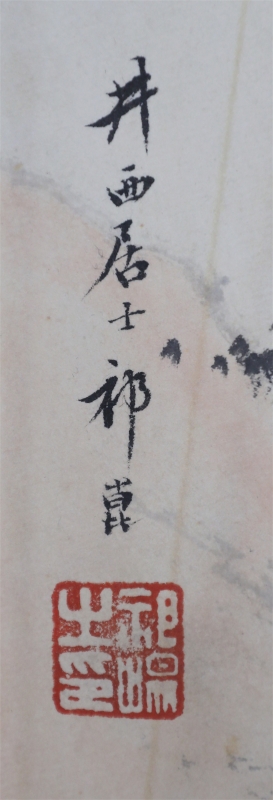 井西居士祁崑
祁崐之印